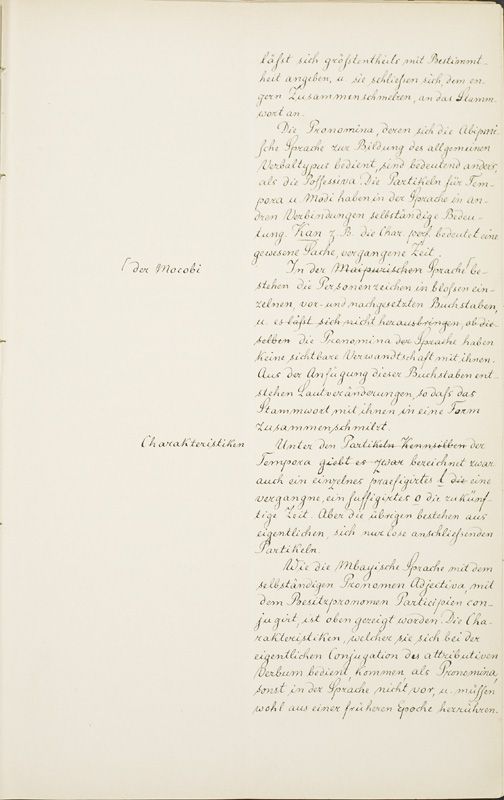 läſst sich gröſstentheils mit Bestimmt-
heit angeben, u. sie schlieſsen sich, dem en-
gern Zusammenschmelzen, an das Stamm-
wort an.
Die Pronomina, deren sich die Abiponi-
sche Sprache zur Bildung des allgemeinen
Verbaltypus bedient, sind bedeutend anders,
als die Poſseſsiva. Die Partikeln für Tem-
pora u. Modi haben in der Sprache in an-
dren Verbindungen selbständige Bedeu-
tung. Kan z. B. die Char. perf. bedeutet eine
gewesene Sache, vergangene Zeit.
⌈der Mocobi
In der Maipurischen Sprache⌈ be-
stehen die Personenzeichen in bloſsen ein-
zelnen, vor- und nachgesetzten Buchstaben,
u. es läſst sich nicht herausbringen, ob die-
selben die Pronomina der Sprache haben
keine sichtbare Verwandtschaft mit ihnen.
Aus der Anfügung dieser Buchstaben ent-
stehen Lautveränderungen, so daſs das
Stammwort mit ihnen in eine Form
zusammenschmilzt.
Charakteristiken
Unter den Partikeln Kennsilben der
Tempora giebt es zwar bezeichnet zwar
auch ein einzelnes praefigirtes l die eine
vergangne, ein suffigirtes o die zukünf-
tige Zeit. Aber die übrigen bestehen aus
eigentlichen, sich nur lose anschlieſsenden
Partikeln.
Wie die Mbayische Sprache mit dem
selbständigen Pronomen Adjectiva, mit
dem Besitzpronomen Participien con-
jugirt, ist oben gezeigt worden. Die Cha-
rakteristiken, welcher sie sich bei der
eigentlichen Conjugation des attributiven
Verbum bedient, kommen als Pronomina,
sonst in der Sprache nicht vor, u. müſsen
wohl aus einer früheren Epoche herrühren.